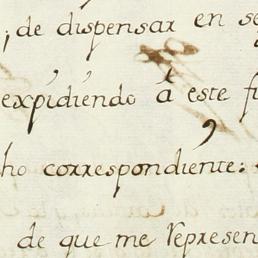 ; de dispensar en se
expidiendo á este fi
ho correspondiente:
de que me represen